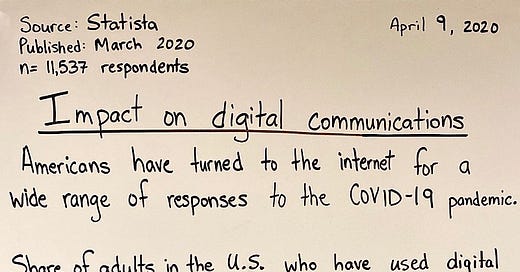 Source: Statista
April 9, 2020
Published: March 2020
n= 11,537 respondents
Impact on digital communications
Americans have turned to the internet for a
wide range of responses to the COVID-19 pandemic.
Share of adults in the U.S. who have used digital